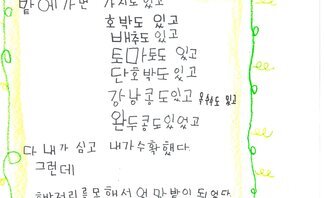 밭에가면 가지도 있고
호박도 있고
배추도 있고
토마토도 있고
단호박도 있고
강낭콩도있고 도 있고
완두콩도있었고
다 내가 심고 내가수확했다.
그런데
정리를못해서 엉망밭이 되었다